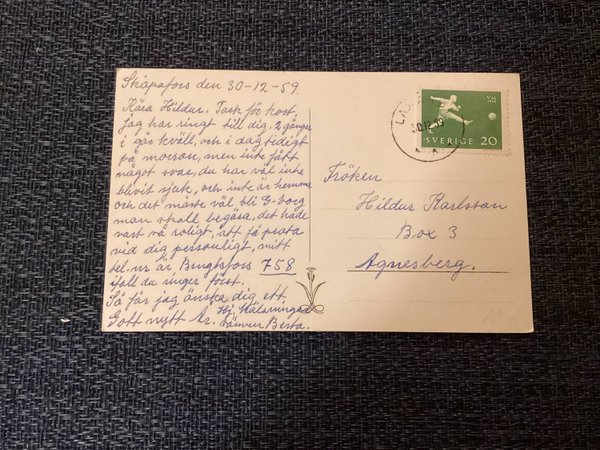 Skåpafors den 30-12-59.
Kära Hildur. Tack för kort
jag har ringt till dig. 2 gånger
i går kväll, och i dag tidigt
på morron, men inte fått
något svar, du har väl inte
blivit sjuk, och inte är hemma
och det måste väl bli G-borg
man skall begära, det hade
vart så roligt, att få prata
vid dig personligt, mitt
tel. nr är Bengtsfors 758
ifall du ringer först.
Så får jag önska dig ett.
Gott nytt År. Hj. Hälsningar
vännen Berta.
SVERIGE 20
Fröken
Hildur Karlsson
Box 3
Agnesberg.